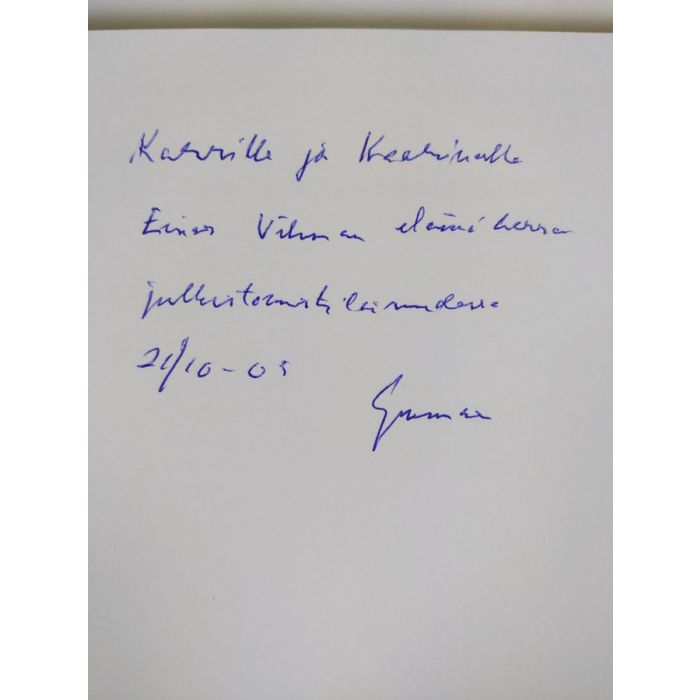 ja Kaarinalle
Einar Vihman elämäkerran
julkistamistilaisuudessa
21/10-05
Gunnar